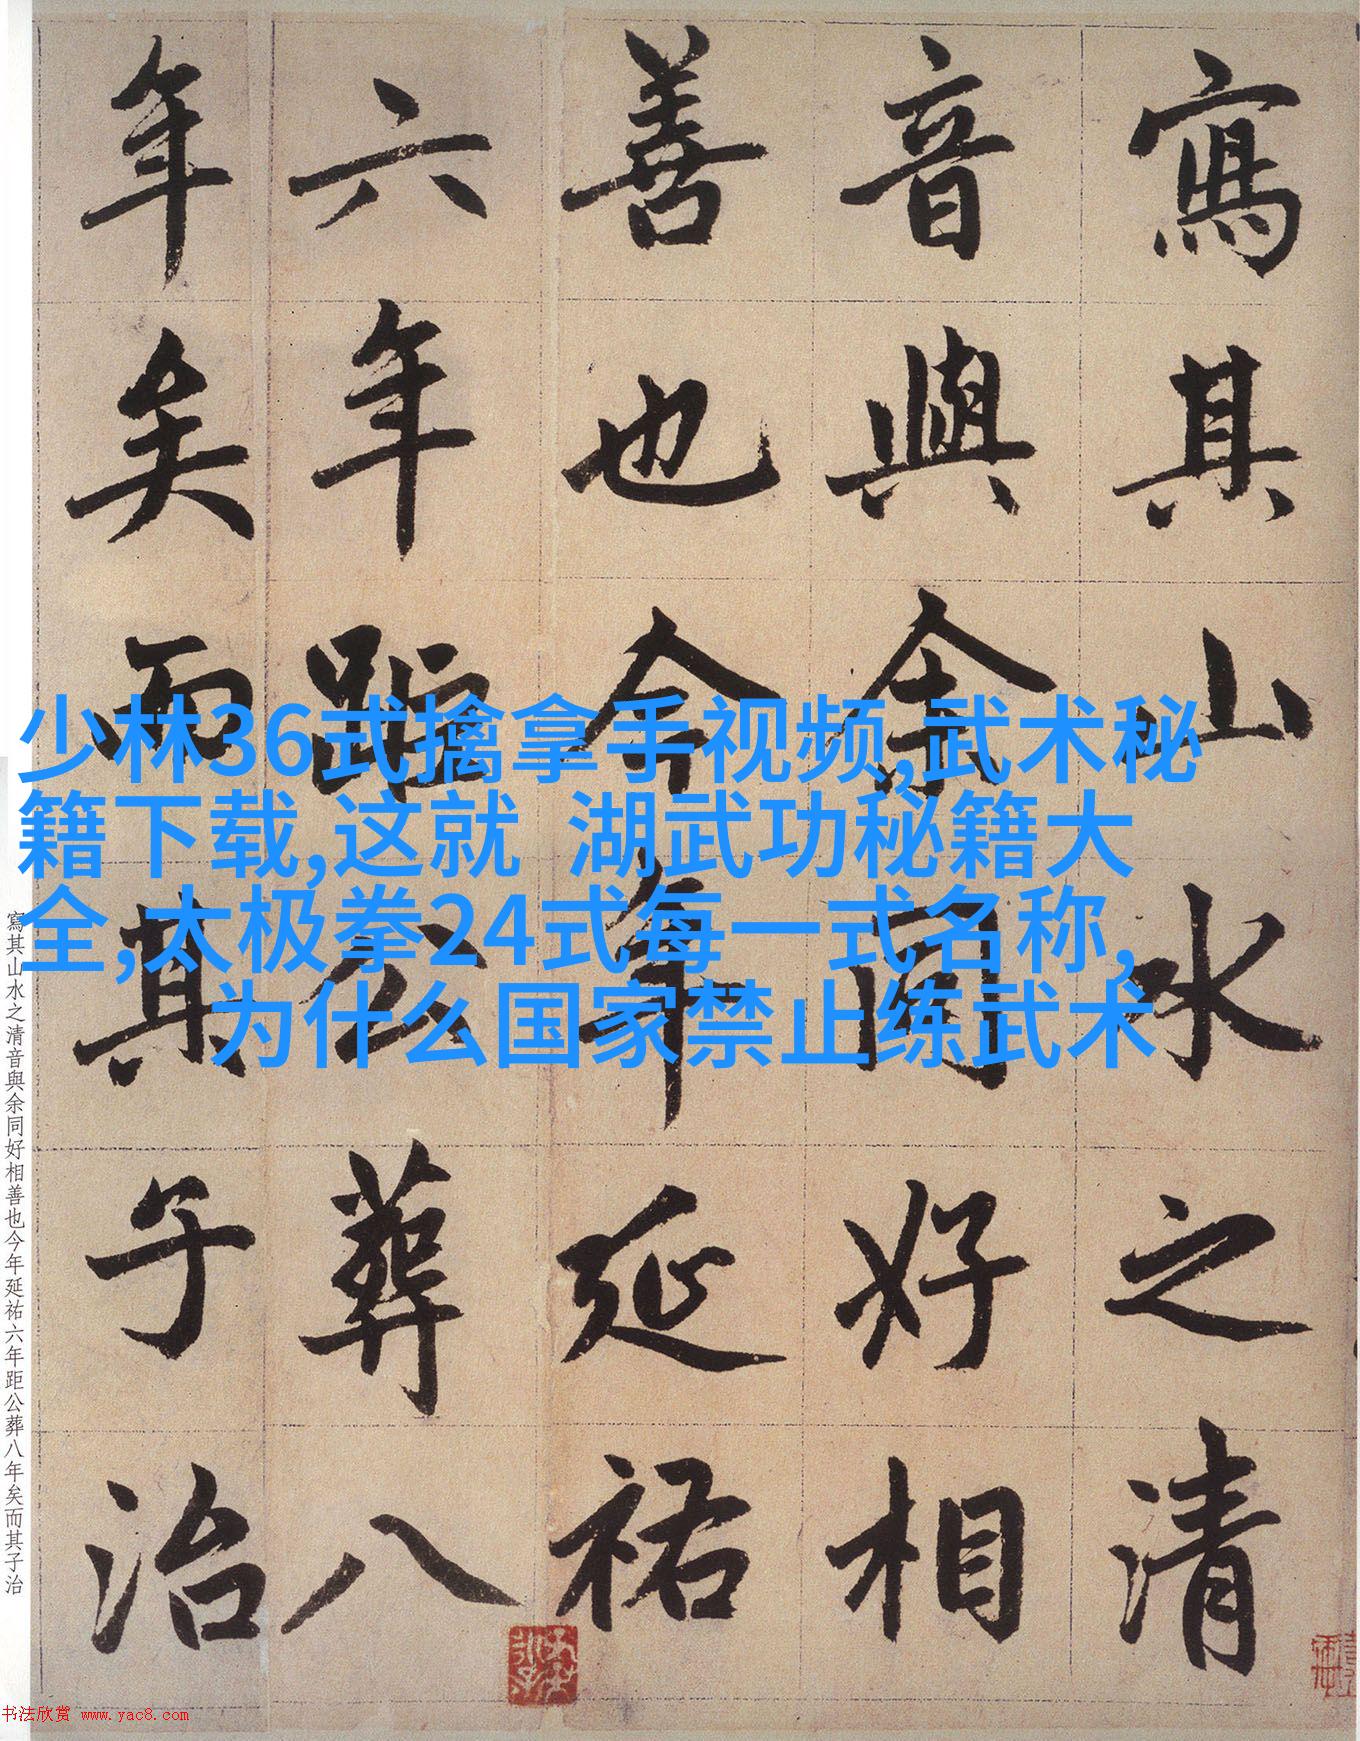 寫其山水之清
音與余同好相
善也今年延祐
六年距公葬八
年矣而其于治
少林36式擒拿手视频,武术秘
籍下载,这就 湖武功秘籍大
全,太极拳24式每一式名称,
为什么国家禁止练武术
寫其山水之清音與余同好相善也今年延祐六年距公葬八年矣而其子治
书法欣赏 www.yac8.com